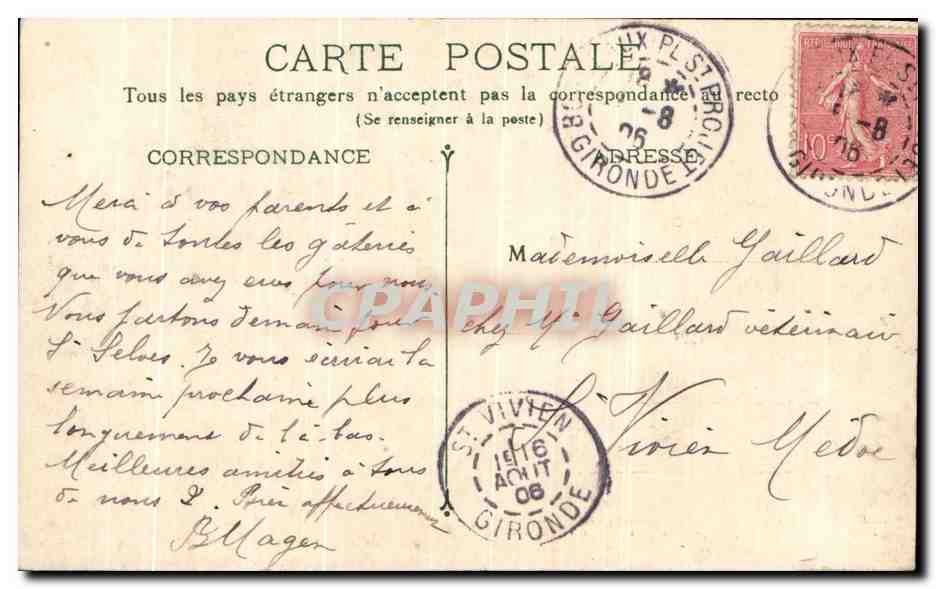 CARTE POSTALE
Tous les pays étrangers n'acceptent pas la correspondance au recto
(Se renseigner à la poste)
CORRESPONDANCE
ADRESSE
Merci à vos parents et à
vous de toutes les gâteries
que vous avez eus pour nous
Nous partons demain pour
St Selves. Je vous écrirai la
semaine prochaine plus
longuement de là-bas.
Meilleures amitiés à tous
de nous 2. Bien affectueusement
BMagen
Mademoiselle Gaillard
chez Mr Gaillard vétérinaire
St Vivien Médoc
UX PL. ST PROJET
8
-8
06
GIRONDE
REPUBLIQUE FRANCAISE
10
-8
06
GIRONDE
ST VIVIEN
16
AOUT
06
GIRONDE
CPAPHIL